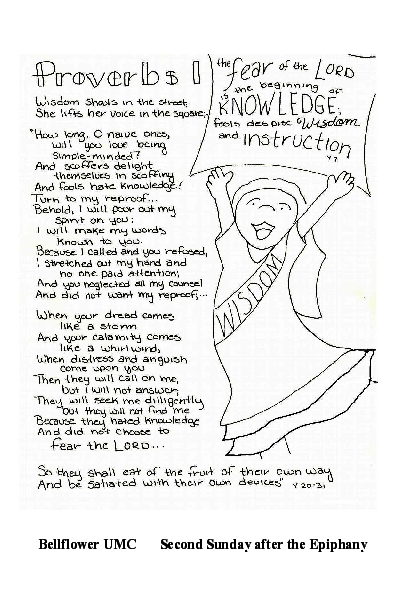 Proverbs 1
the fear of the LORD
is the beginning of
KNOWLEDGE;
fools despise Wisdom
and instruction
v 7
Wisdom shouts in the street,
She lifts her voice in the square;
"How long, O naive ones,
will you love being
simple-minded?
And scoffers delight
themselves in scoffing
And fools hate knowledge!
Turn to my reproof...
Behold, I will pour out my
spirit on you;
I will make my words
known to you.
Because I called and you refused,
I stretched out my hand and
no one paid attention;
And you neglected all my counsel
And did not want my reproof;...
When your dread comes
like a storm
And your calamity comes
like a whirlwind,
When distress and anguish
come upon you
Then they will call on me,
but I will not answer;
They will seek me diligently
but they will not find me
Because they hated knowledge
And did not choose to
fear the LORD...
So they shall eat of the fruit of their own way
And be satiated with their own devices" v 20-31
WISDOM
Bellflower UMC Second Sunday after the Epiphany